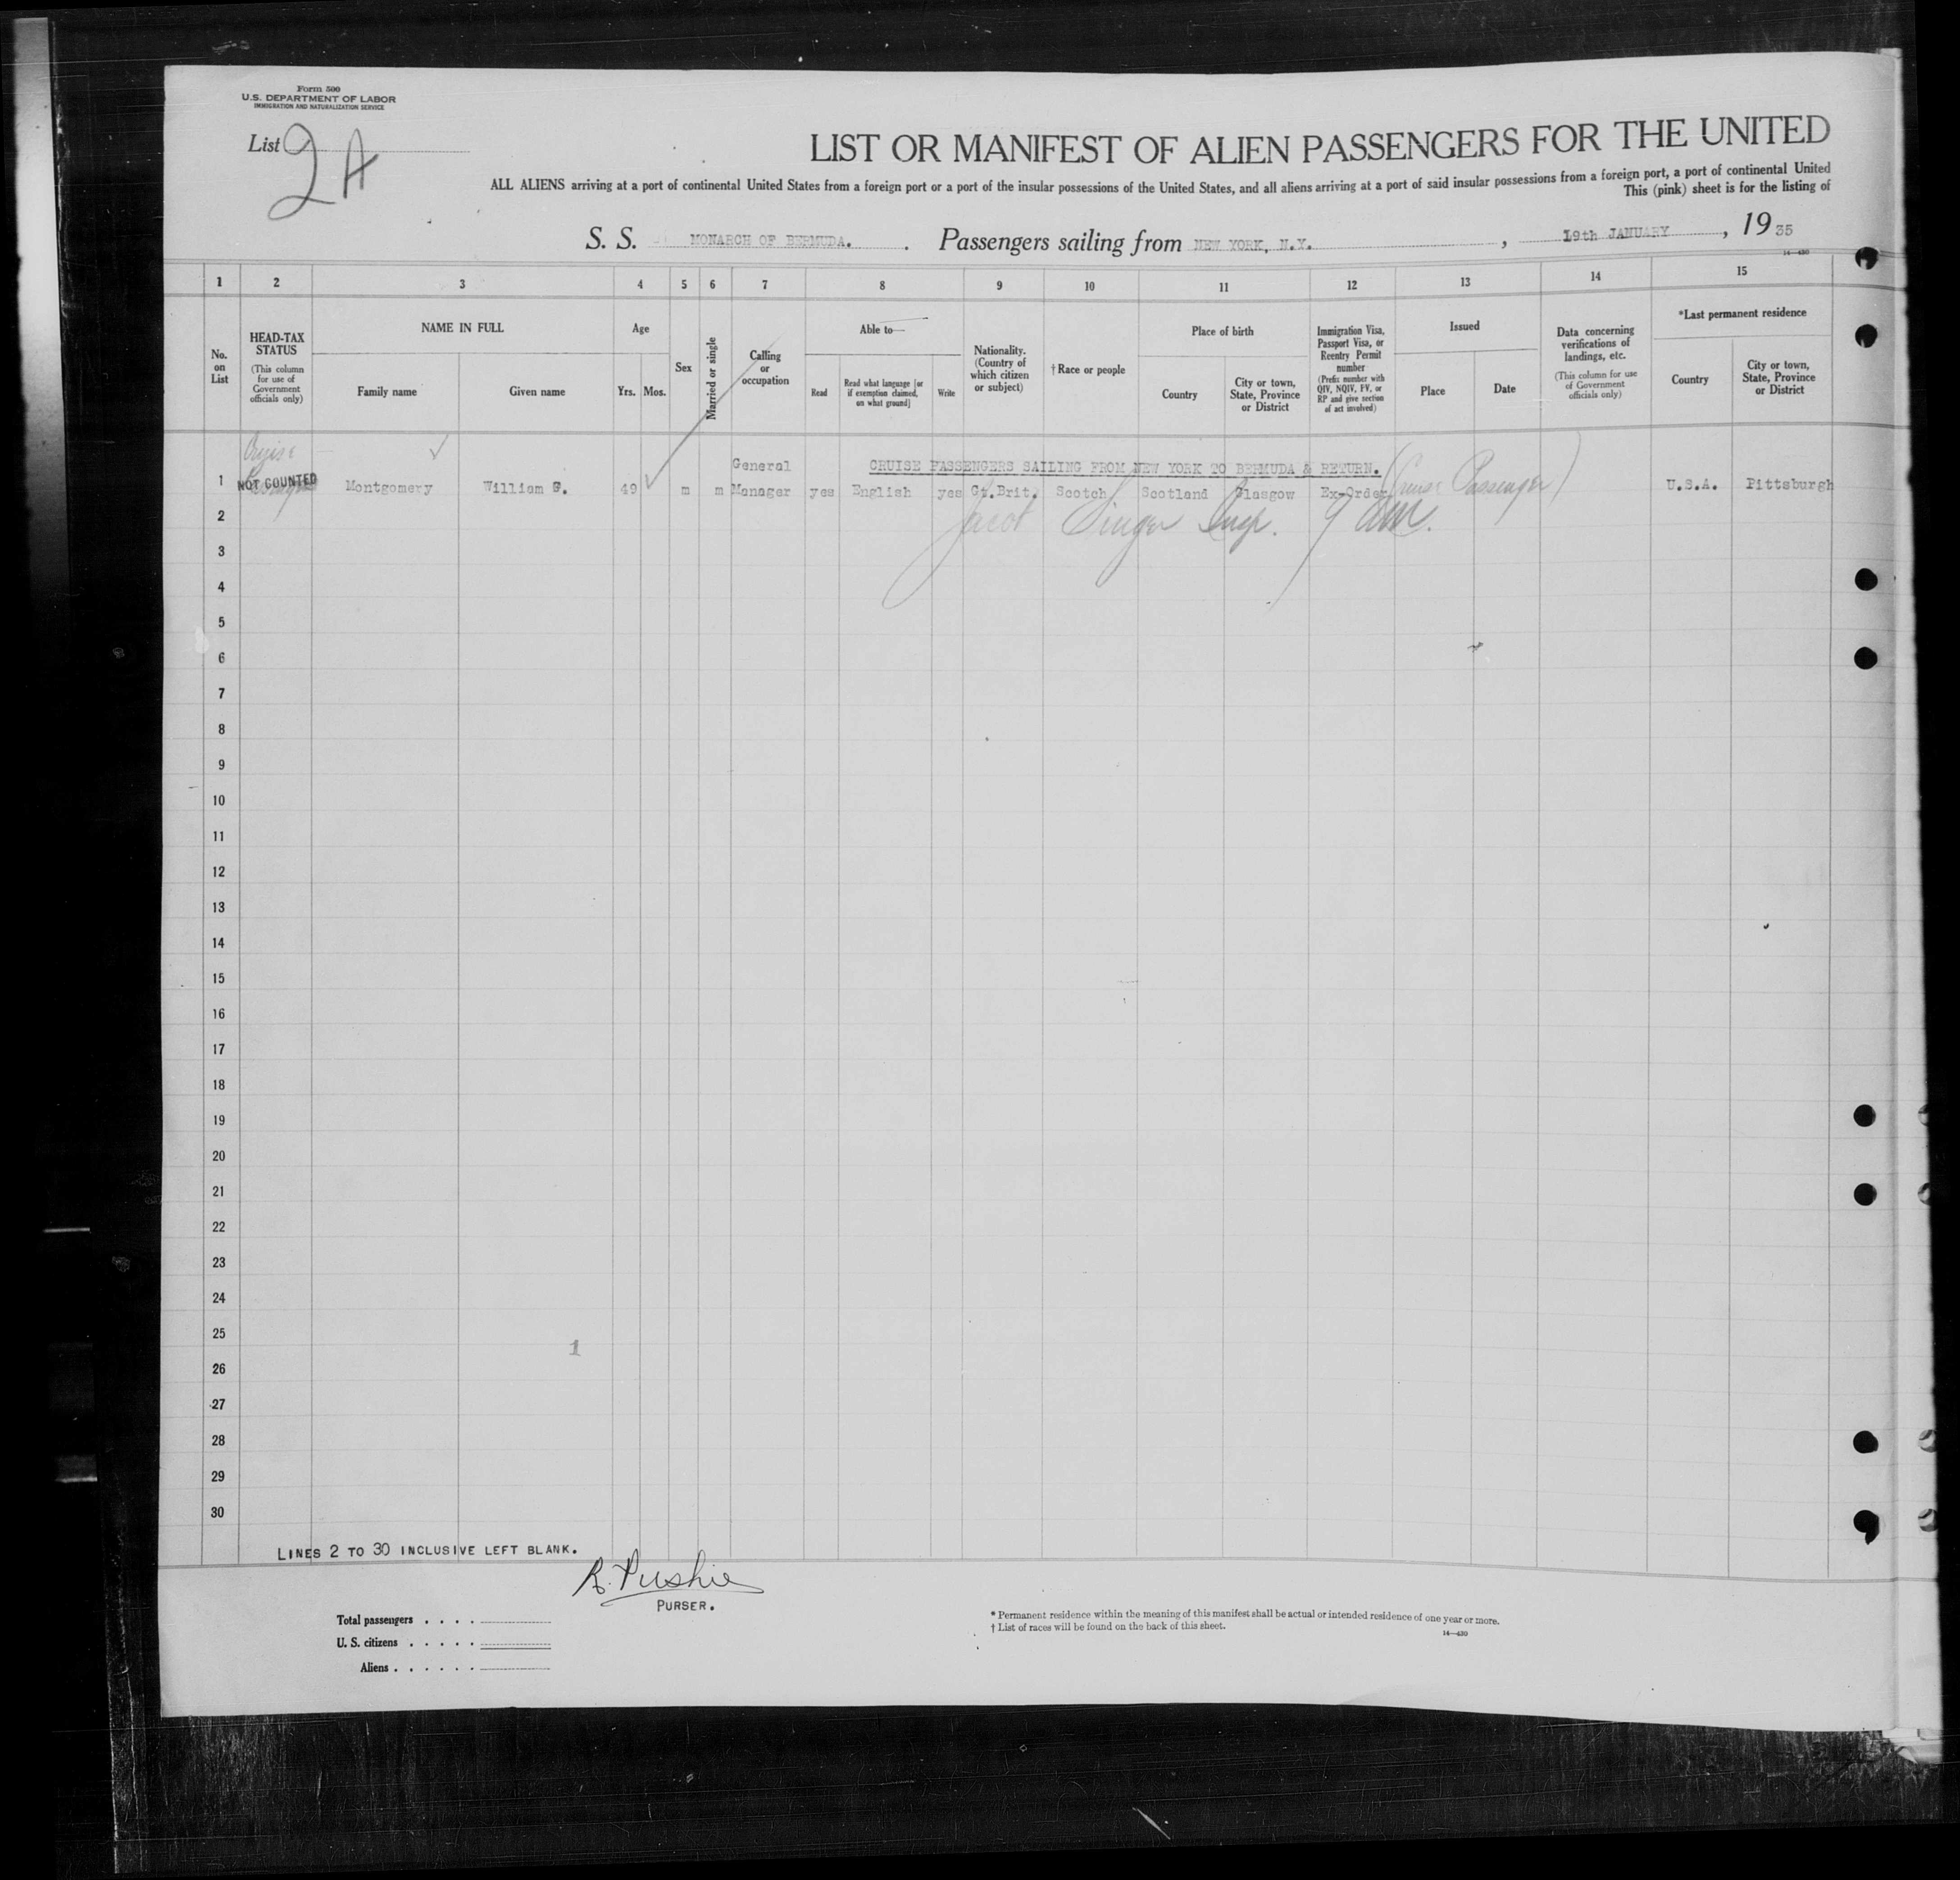 Form 500
U.S. DEPARTMENT OF LABOR
IMMIGRATION AND NATURALIZATION SERVICE
List 2A
LIST OR MANIFEST OF ALIEN PASSENGERS FOR THE UNITED
ALL ALIENS arriving at a port of continental United States from a foreign port or a port of the insular possessions of the United States, and all aliens arriving at a port of said insular possessions from a foreign port, a port of continental United
This (pink) sheet is for the listing of
S. S. MONARCH OF BERMUDA. Passengers sailing from NEW YORK, N.Y. , 19th JANUARY , 1935
14—430
1 2 3 4 5 6 7 8 9 10 11 12 13 14 15
No. on List
HEAD-TAX STATUS (This column for use of Government officials only)
NAME IN FULL
Family name Given name
Age
Yrs. Mos.
Sex
Married or single
Calling or occupation
Able to—
Read Read what language [or if exemption claimed, on what ground] Write
Nationality. (Country of which citizen or subject)
†Race or people
Place of birth
Country City or town, State, Province or District
Immigration Visa, Passport Visa, or Reentry Permit number (Prefix number with QIV, NQIV, FV, or RP and give section of act involved)
Issued
Place Date
Data concerning verifications of landings, etc. (This column for use of Government officials only)
*Last permanent residence
Country City or town, State, Province or District
Cruise
CRUISE PASSENGERS SAILING FROM NEW YORK TO BERMUDA & RETURN.
1 NOT COUNTED Montgomery William G. 49 m m General Manager yes English yes Gt.Brit. Scotch Scotland Glasgow Ex-Order (Cruise Passenger) U.S.A. Pittsburgh
2 Jacob Singer Insp.
3
4
5
6
7
8
9
10
11
12
13
14
15
16
17
18
19
20
21
22
23
24
25
1
26
27
28
29
30
LINES 2 TO 30 INCLUSIVE LEFT BLANK.
R. Pushie
PURSER.
Total passengers . . . .
U. S. citizens . . . . .
Aliens . . . . . .
* Permanent residence within the meaning of this manifest shall be actual or intended residence of one year or more.
† List of races will be found on the back of this sheet.
14—430